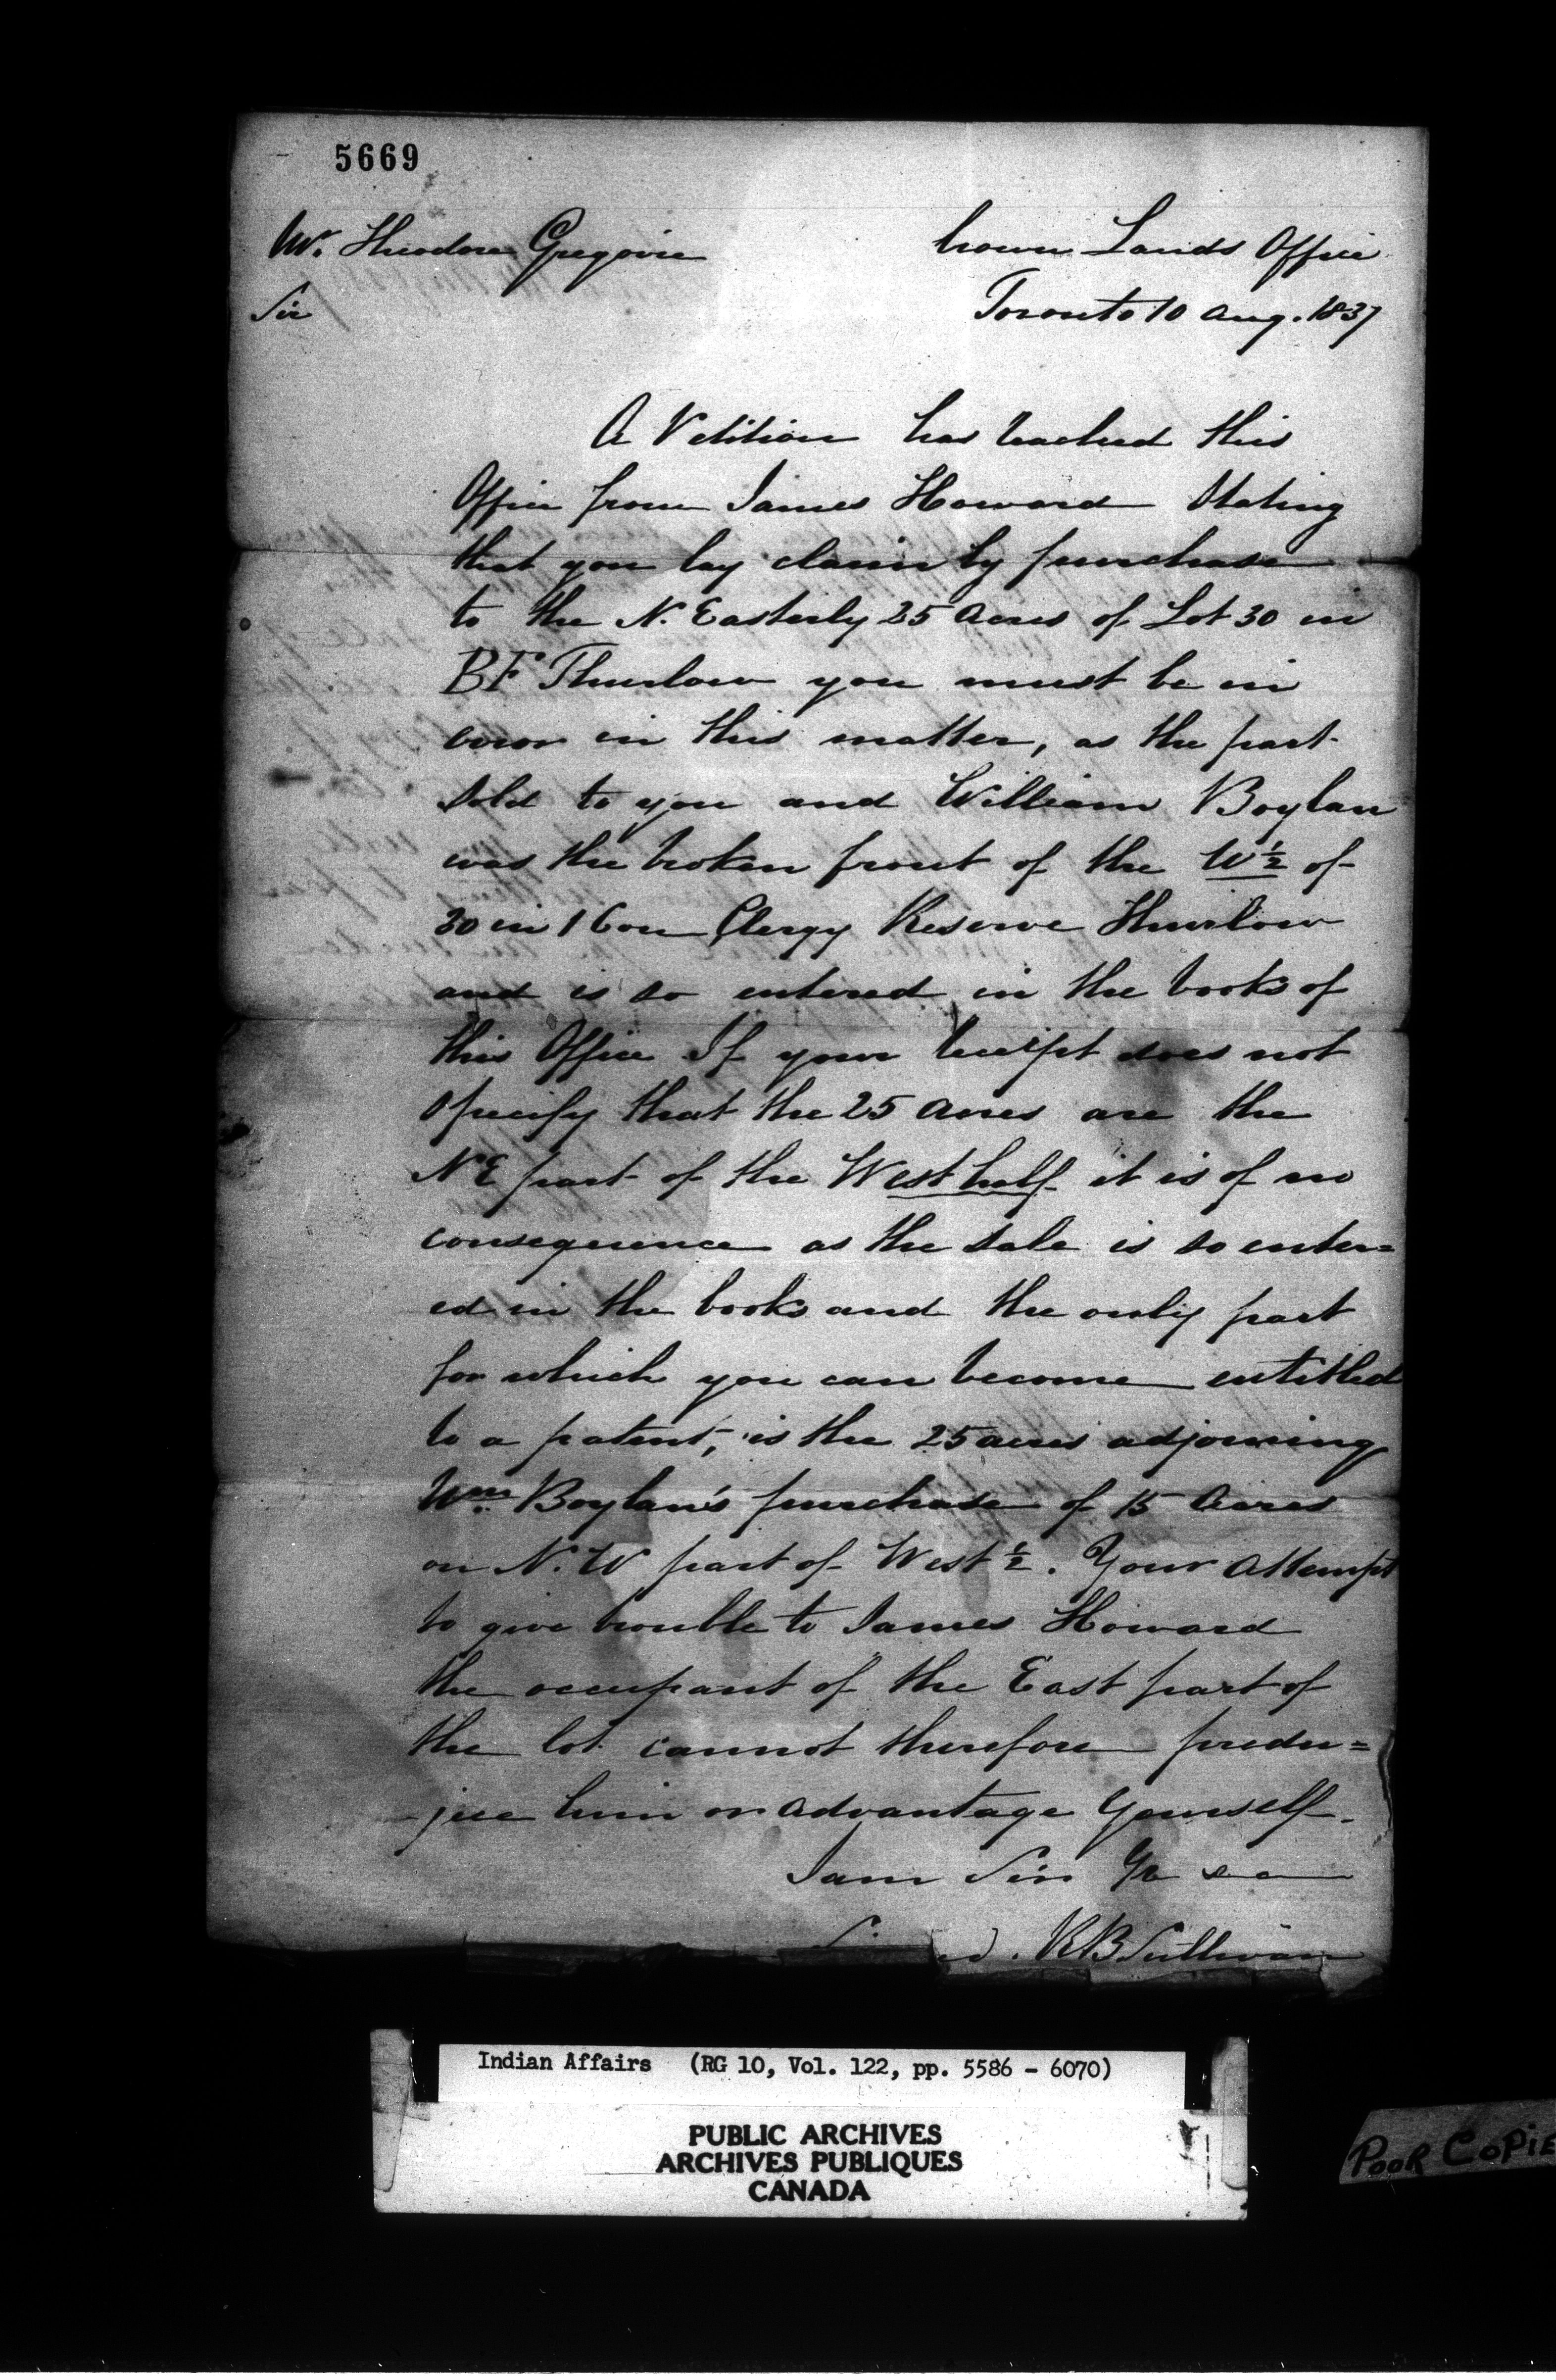 5669
Mr. Theodore Gregorie
Crown Lands Office
Sir
Toronto 10 Aug. 1837
A Petition has reached this
Office from James Howard Stating
that you lay claim by purchase
to the N. Easterly 25 Acres of Lot 30 in
BF Thurlow you must be in
error in this matter, as the part
sold to you and William Boylan
was the broken front of the W ½ of
30 in 1 Con Clergy Reserve Thurlow
and is so entered in the books of
this Office If your receipt does not
specify that the 25 Acres are the
NE part of the West half it is of no
consequence as the sale is so enter=
ed in the books and the only part
for which you can become entitled
to a patent, is the 25 acres adjoining
Wm Boylan's purchase of 15 Acres
on N. W part of West ½. Your Attempt
to give trouble to James Howard
the occupant of the East part of
the lot cannot therefore predu=
jice him or advantage Yourself.
I am Sir
R B Sullivan
Indian Affairs (RG 10, Vol. 122, pp. 5586 - 6070)
PUBLIC ARCHIVES
ARCHIVES PUBLIQUES
CANADA
POOR COPIE